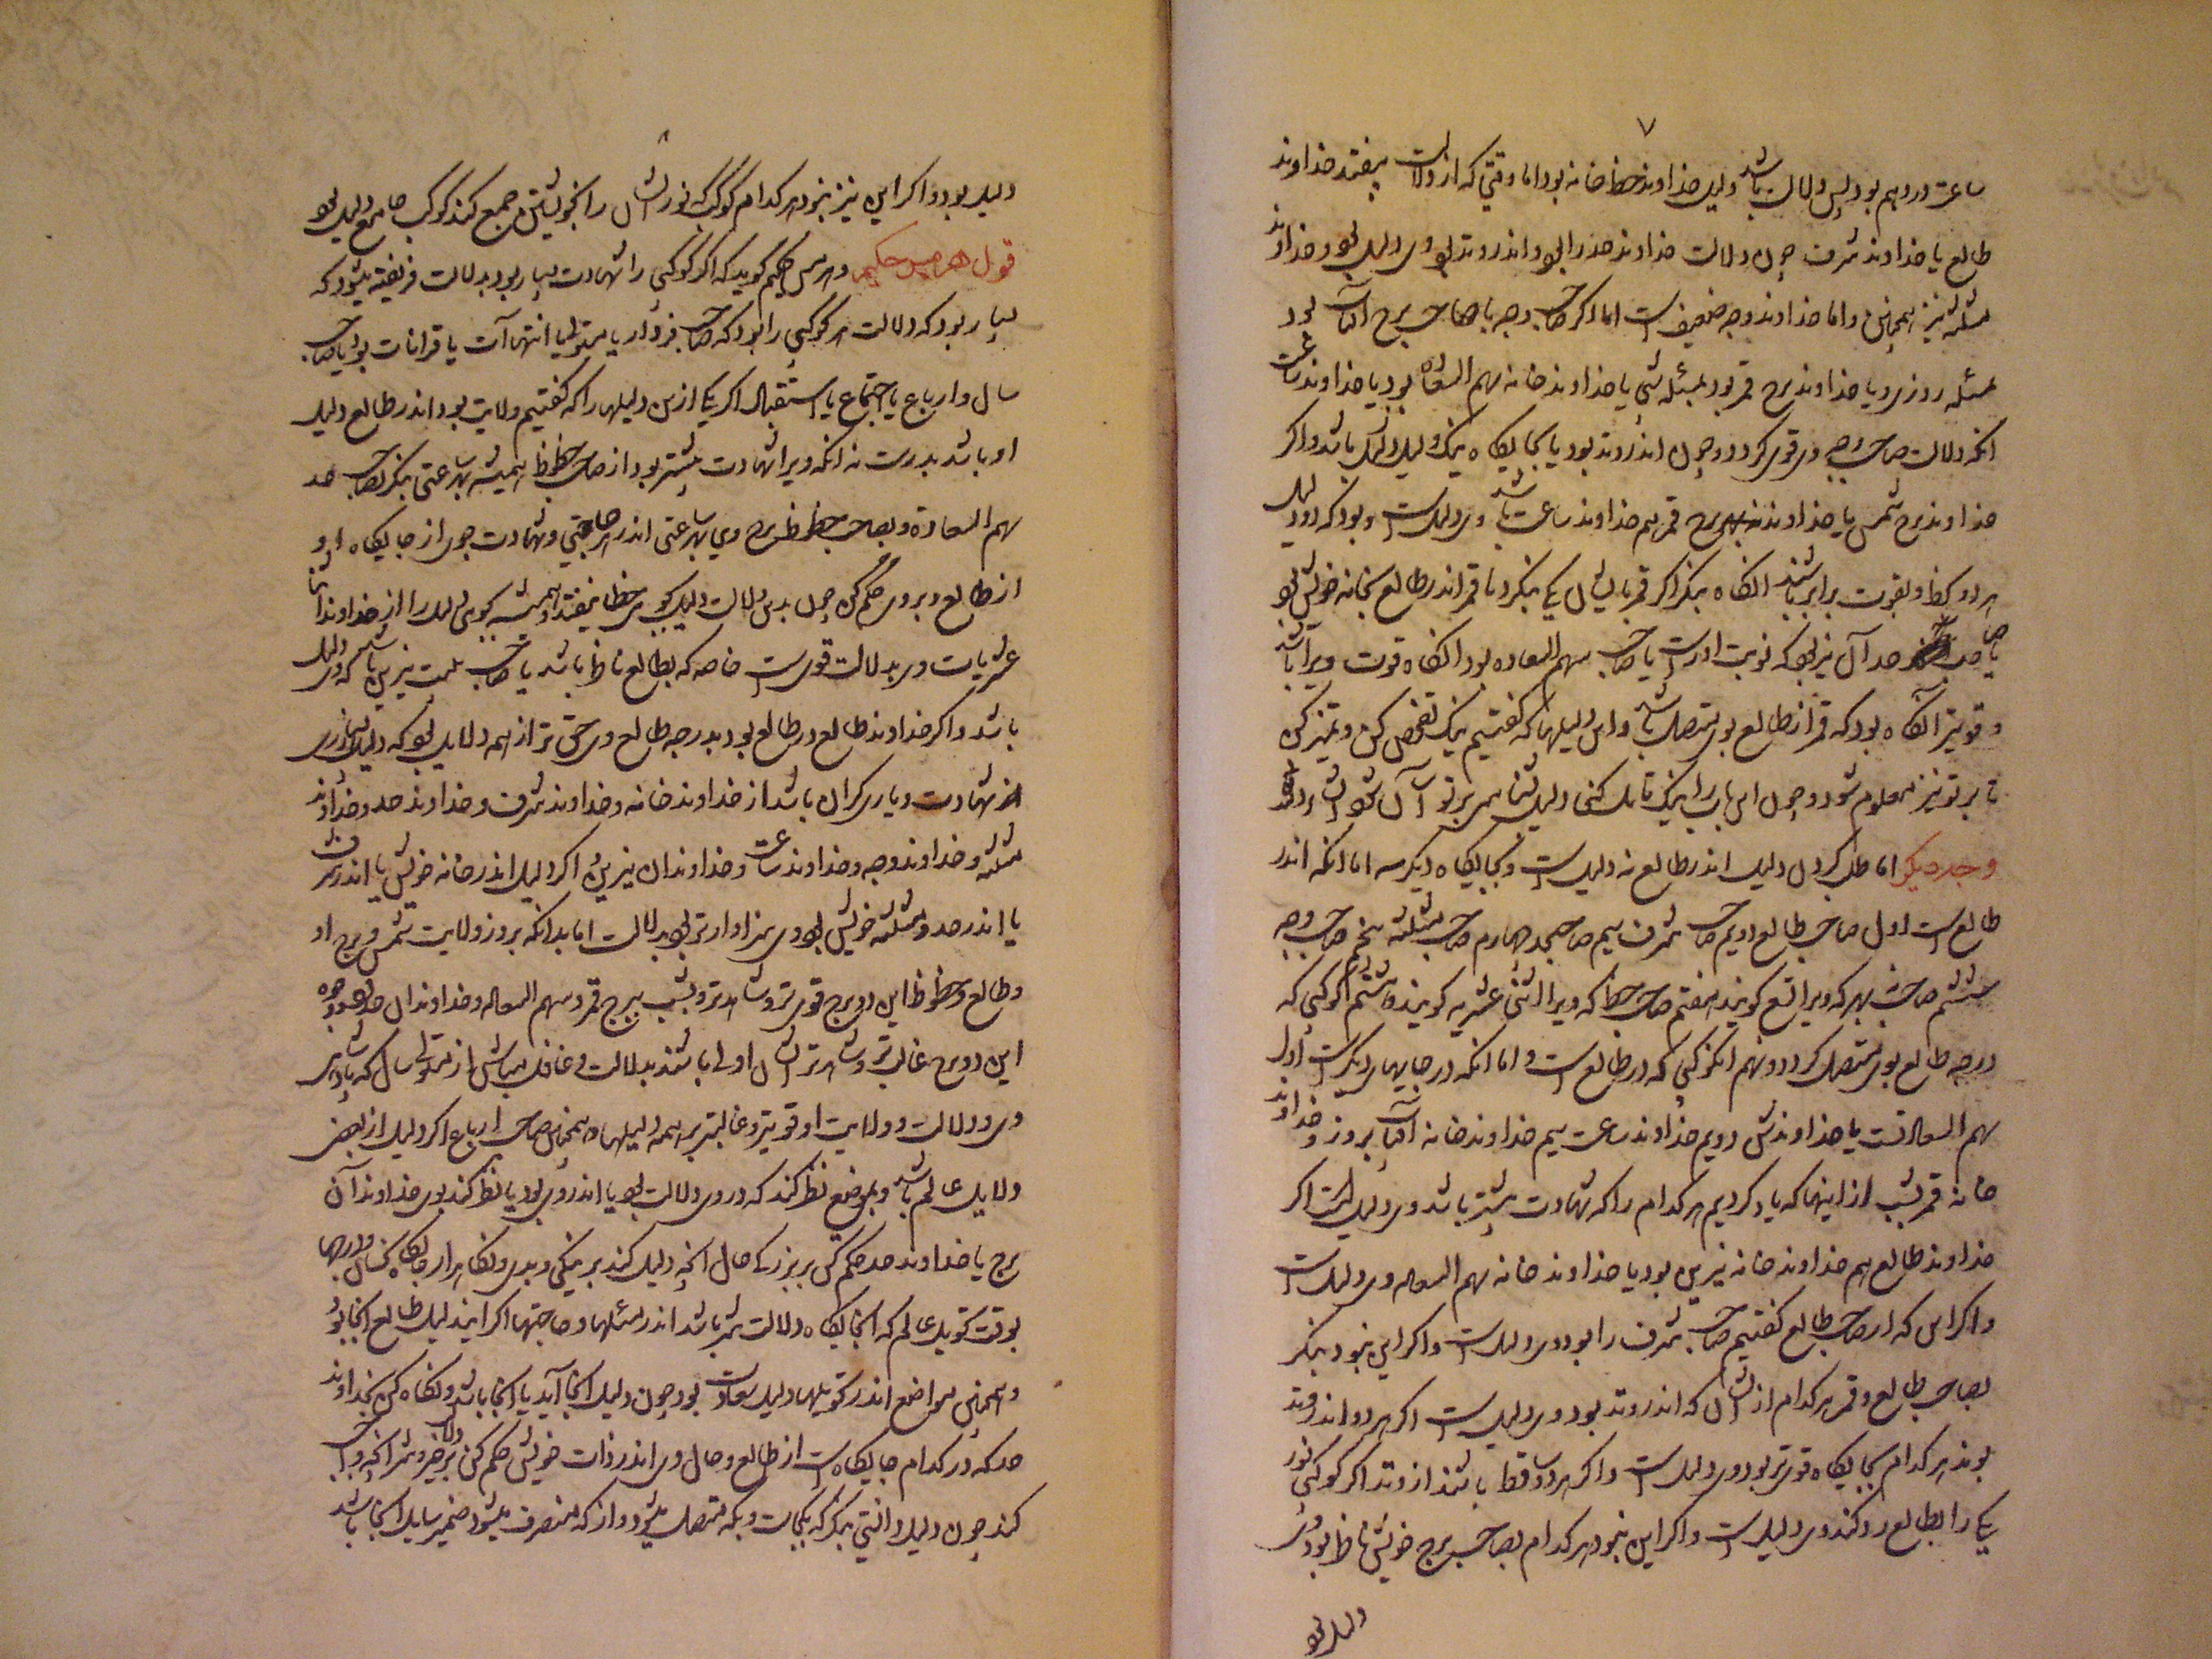 ۷
ساعت دردهم بود پس دلالت باشد دلیل خداوند حظ خانه بود اما وقتی که از دلالت بیفتد خداوند
طالع یا خداوند شرف چون دلالت خداوند حد را بود و اندر وتد بود وی دلیل بود و خداوند
مثلثه نیز همچنین و اما خداوند وجه ضعیف است اما اگر صاحب وجه با صاحب برج آفتاب بود
بمسئله روزی و یا خداوند برج قمر بود بمسئله شبی یا خداوند خانه سهم السعاده بود یا خداوند ساعت
انکه دلالت صاحب وجه وی قوی کردد و چون اندر وتد بود یا بجایکاه نیک دلیل باشد و اکر
خداوند برج شمس یا خداوند برج قمر هم خداوند ساعت باشد وی دلیل است و بود که دو دلیل
هر دو بحظ و بقوت برابر باشند انکاه بنکر اکر قمر با ایشان یکی بنکرد تا قمر اندر طالع بخانه خویش بود
یا صاحب حد آن نیز بود که نوبت اوراست یا صاحب سهم السعاده بود انکاه قوت ویرا باشد
و قویتر آنکاه بود که قمر از طالع بوی متصل باشد و این دلیلها که کفتیم نیک تفحص کن و تمیز کن
تا بر تو نیز معلوم شود و چون این باب را نیک تامل کنی دلیل شناسی بر تو آسان شود انشاءالله
وجه دیکر اما طلب کردن دلیل اندر طالع نه دلیل است و بجایکاه دیکر سه اما انکه اندر
طالع است اول صاحب طالع دویم صاحب شرف سیم صاحب حد چهارم صاحب مثلثه پنجم صاحب وجه
ششم صاحب نهبهر که ویرا تسع کویند هفتم صاحب حظ که ویرا اثنی عشریه کویند هشتم کوکبی که
درجه طالع بوی متصل کردد و نهم انکوکبی که در طالع است و اما انکه در جایهای دیکر است اول
سهم السعادتست یا خداوندش دویم خداوند ساعت سیم خداوند خانه آفتاب بروز و خداوند
خانه قمر بشب از اینها که یاد کردیم هر کدام را که شهادت بیشتر باشد وی دلیل است اکر
خداوند طالع هم خداوند خانه نیرین بود یا خداوند خانه سهم السعاده وی دلیل است
و اکر این که از صاحب طالع کفتیم صاحب شرف را بود وی دلیل است و اکر این نبود بنکر
بصاحب طالع و قمر هر کدام از ایشان که اندر وتد بود وی دلیل است اکر هر دو اندر وتد
بوند هر کدام بجایکاه قوی تر بود وی دلیل است و اکر هر دو ساقط باشند از وتد اکر کوکبی نور
یکی را بطالع رد کند وی دلیل است و اکر این نبود هر کدام بصاحب برج خویش ناظر بود وی
دلیل بود
۸
دلیل بود و اکر این نیز نبود هر کدام کوکب که نور ایشان را بخویشتن جمع کند کوکب جامع دلیل بود
قول هرمس حکیم و هرمس حکیم کوید که اکر کوکبی را شهادت بسیار بود بدلالت فریفته مشو که
بسیار بود که دلالت هر کوکبی را بود که صاحب فردار یا متولی یا انتهاآت یا قرانات بود یا صاحب
سال و ارباع یا اجتماع یا استقبال اکر یکی ازین دلیلها را که کفتیم ولایت بود اندر طالع دلیل
او باشد بدرستی نه انکه ویرا شهادت بیشتر بود از صاحب حظوظ همیشه بهر ساعتی بنکر بصاحب حد
سهم السعادة و بصاحب حظوظ برج وی بهر ساعتی اندر هر حاجتی و شهادت جوی از جایکاه او و
از طالع و بروی حکم کن چون بدین دلالت دلیل کوی خطا نیفتد و همیشه کوی دلیل را از خداوند اثنا
عشریات وی بدلالت قوی است خاصه که بطالع ناظر باشد یا صاحب بیت نیرین باشد که وی دلیل
باشد و اکر خداوند طالع در طالع بود بدرجه طالع وی حق تر از همه دلایل بود که دلیل سازی
از شهادت و یاری کران باشد از خداوند خانه و خداوند شرف و خداوند حد و خداوند
مثلثه و خداوند وجه و خداوند ساعت و خداوندان نیرین اکر دلیل اندر خانه خویش یا اندر شرف
یا اندر حد و مثلثه خویش بود وی سزاوارتر بود بدلالت اما بدانکه بروز ولایت شمس و برج او
و طالع و حظوظ این دو برج قوی تر و شاهدتر و بشب ببرج قمر و سهم السعاده و خداوندان حد و وجوه
این دو برج غالب تر و شاهدتر ایشان اولی باشند بدلالت و غافل مباش از متولی سال که شاید
وی و دلالت و ولایت او قویتر و غالبتر بر همه دلیلها و همچنین صاحب ارباع اکر دلیل از بعض
دلایل عالم باشد و بموضع نظر کند که در وی دلالت بود یا اندر وی بود یا نظر کند بوی خداوند آن
برج یا خداوند حد حکم کن بر بزرکی حال انچه دلیل کند بر نیکی و بدی و نکاه دار جایکاه نحسان و درجها
بوقت تحویل عالم که انجایکاه دلالت شر باشد اندر مسئلها و حاجتها اکر ایند لیل طالع انجا بود
و همچنین مواضع اندر تحویلها دلیل سعادت بود چون دلیل انجا آید یا انجا باشد و نکاه کن بخداوند
حد که در کدام جایکاه است از طالع و حال وی اندر ذات خویش حکم کن بر خیر و شر انچه واجب
کند چون دلیل دانستی بنکر که بکجاست و بکه متصل میشود و از که منصرف میشود ضمیر سایل انجا باشد